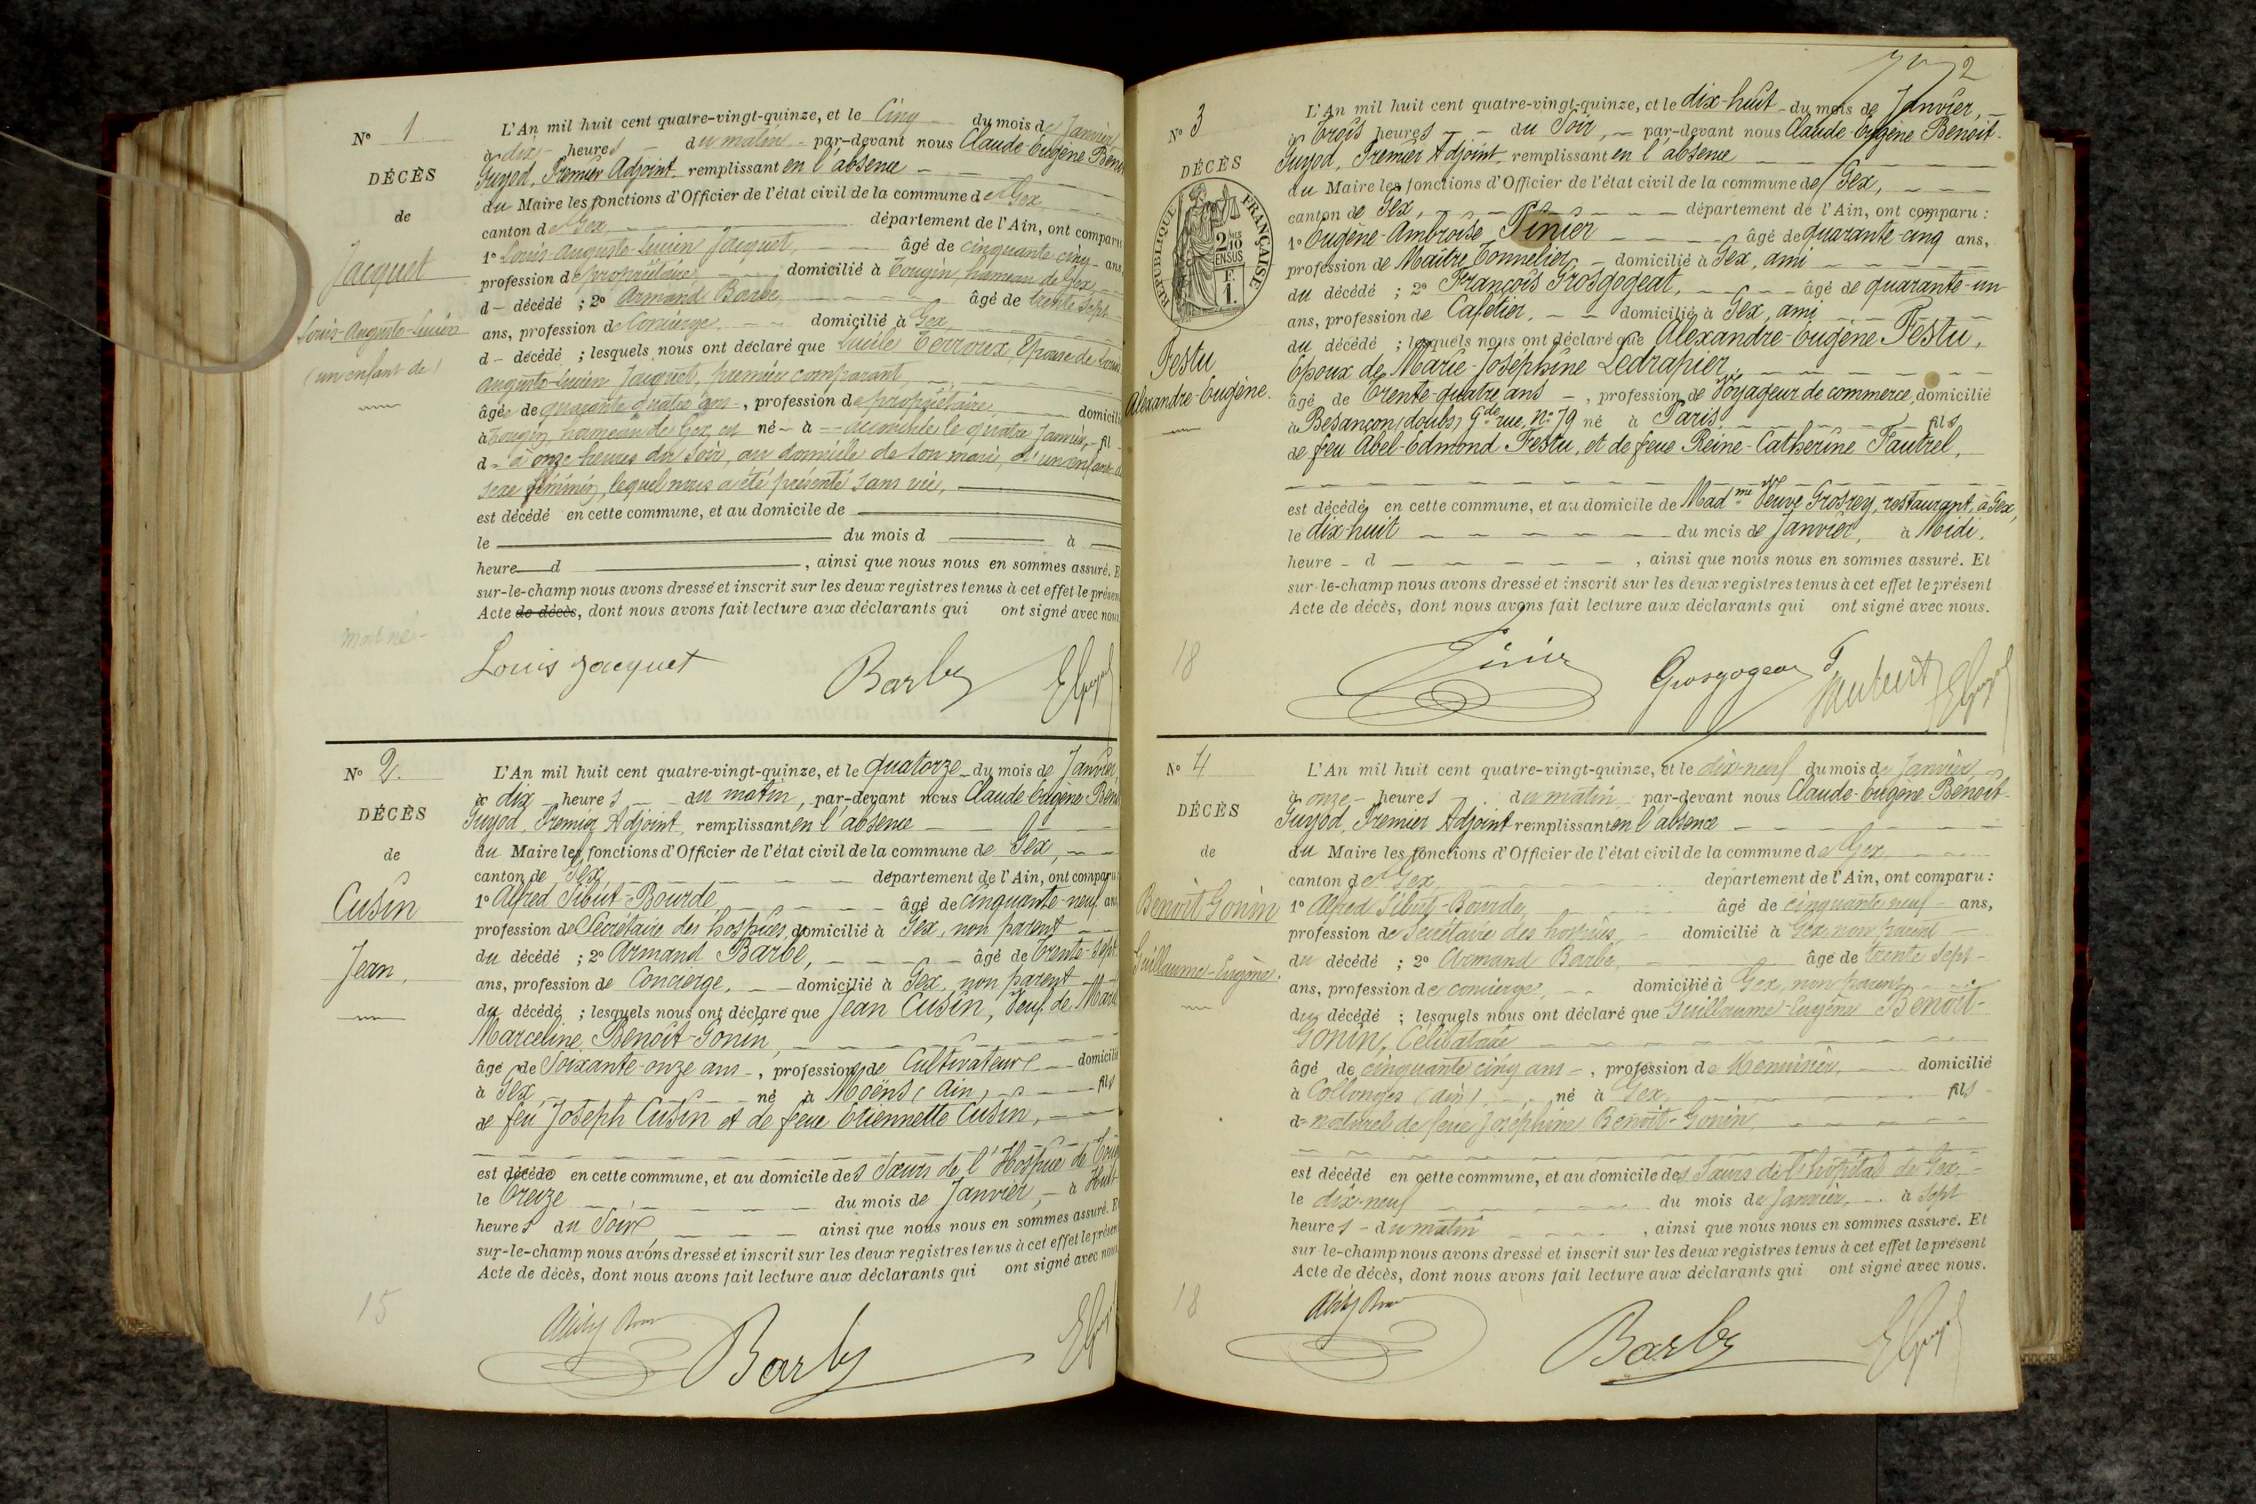 N° 1
DÉCÈS
de
Jacquet
Louis-Auguste-Lucien
(un enfant de)
L'An mil huit cent quatre-vingt-quinze, et le Cinq du mois de Janvier,
à dix heures du matin par-devant nous Claude-Eugène Benoit
Guyod, Premier Adjoint remplissant en l'absence
du Maire les fonctions d'Officier de l'état civil de la commune de Gex
canton de Gex département de l'Ain, ont comparu
1° Louis-Auguste-Lucien Jacquet, âgé de cinquante-cinq ans
profession de propriétaire domicilié à Tougin, hameau de Gex
d décédé ; 2° Armand Barbe, âgé de trente sept
ans, profession de Concierge domicilié à Gex
d décédé ; lesquels nous ont déclaré que Lucile Terroux Epouse de Louis
Auguste-Lucien Jacquet, premier comparant,
âgée de quarante quatre ans, profession de propriétaire domicilié
à Tougin, hameau de Gex, est né à accouchée le quatre Janvier, fil
d à onze heures du soir, au domicile de son mari, d'un enfant du
sexe féminin, lequel nous a été présenté sans vie,
est décédé en cette commune, et au domicile de
le du mois d à
heure d , ainsi que nous nous en sommes assuré. E
sur-le-champ nous avons dressé et inscrit sur les deux registres tenus à cet effet le présen
Acte de décès, dont nous avons fait lecture aux déclarants qui ont signé avec nous
Louis Jacquet Barbe
N° 2.
DÉCÈS
de
Cusin
Jean,
15
L'An mil huit cent quatre-vingt-quinze, et le quatorze du mois de Janvier,
à dix heures du matin, par-devant nous Claude Eugène Beno
Guyod, Premier Adjoint, remplissant en l'absence
du Maire les fonctions d'Officier de l'état civil de la commune de Gex,
canton de Gex département de l'Ain, ont comparu
1° Alfred Sibut-Bourde âgé de Cinquante-neuf ans
profession de Secrétaire des hospices, domicilié à Gex, non parent
du décédé ; 2° Armand Barbe, âgé de Trente-sept
ans, profession de Concierge, domicilié à Gex, non parent
du décédé ; lesquels nous ont déclaré que Jean Cusin, Veuf de Marie
Marceline Benoît-Gonin,
âgé de Soixante-onze ans, profession de Cultivateur domicilié
à Gex, né à Moëns (Ain, fils
de feu Joseph Cusin et de feue Etiennette Cusin,
est décédé en cette commune, et au domicile des Sœurs de l'Hospice de Toug
le Treize du mois de Janvier, à Huit
heures du Soir ainsi que nous nous en sommes assuré. E
sur-le-champ nous avons dressé et inscrit sur les deux registres tenus à cet effet le présen
Acte de décès, dont nous avons fait lecture aux déclarants qui ont signé avec nous
Barbe
2
N° 3
DÉCÈS
RÉPUBLIQUE FRANÇAISE
2/10 EN SUS
F
1.
Festu
Alexandre-Eugène.
18
L'An mil huit cent quatre-vingt-quinze, et le dix-huit du mois de Janvier,
à Trois heures du Soir, par-devant nous Claude-Eugène Benoit-
Guyod, Premier Adjoint, remplissant en l'absence
du Maire les fonctions d'Officier de l'état civil de la commune de Gex,
canton de Gex, département de l'Ain, ont comparu :
1° Eugène-Ambroise Pinier âgé de quarante-cinq ans,
profession de Maître Tonnelier, domicilié à Gex, ami
du décédé ; 2° François Grosgogeat, âgé de quarante-un
ans, profession de Cafetier, domicilié à Gex, ami
du décédé ; lesquels nous ont déclaré que Alexandre-Eugène Festu,
Epoux de Marie-Joséphine Ledrapier,
âgé de Trente-quatre ans, profession de Voyageur de commerce, domicilié
à Besançon (doubs) Gde rue, N° 79 né à Paris, fils
de feu Abel-Edmond Festu, et de feue Reine-Catherine Fautrel,
est décédé en cette commune, et au domicile de Madme Veuve Grosrey, restaurant, à Gex,
le dix-huit du mois de Janvier, à Midi,
heure d , ainsi que nous nous en sommes assuré. Et
sur-le-champ nous avons dressé et inscrit sur les deux registres tenus à cet effet le présent
Acte de décès, dont nous avons fait lecture aux déclarants qui ont signé avec nous.
Pinier Grosgogeat F.
N° 4
DÉCÈS
de
Benoit Gonin
Guillaume-Eugène.
18
L'An mil huit cent quatre-vingt-quinze, et le dix-neuf du mois de Janvier,
à onze heures du matin par-devant nous Claude-Eugène Benoit-
Guyod, Premier Adjoint remplissant en l'absence
du Maire les fonctions d'Officier de l'état civil de la commune de Gex
canton de Gex département de l'Ain, ont comparu :
1° Alfred Sibut-Bourde, âgé de cinquante neuf ans,
profession de Secrétaire des hospices, domicilié à Gex, non parent
du décédé ; 2° Armand Barbe, âgé de trente sept
ans, profession de concierge, domicilié à Gex, non parent
du décédé ; lesquels nous ont déclaré que Guillaume-Eugène Benoit-
Gonin, Célibataire
âgé de cinquante cinq ans, profession de Menuisier, domicilié
à Collonges (ain) né à Gex, fils
d naturel de feue Joséphine Benoit-Gonin,
est décédé en cette commune, et au domicile des Sœurs de l'hôpital de Gex,
le dix-neuf du mois de Janvier, à Sept
heures du matin , ainsi que nous nous en sommes assuré. Et
sur-le-champ nous avons dressé et inscrit sur les deux registres tenus à cet effet le présent
Acte de décès, dont nous avons fait lecture aux déclarants qui ont signé avec nous.
Barbe